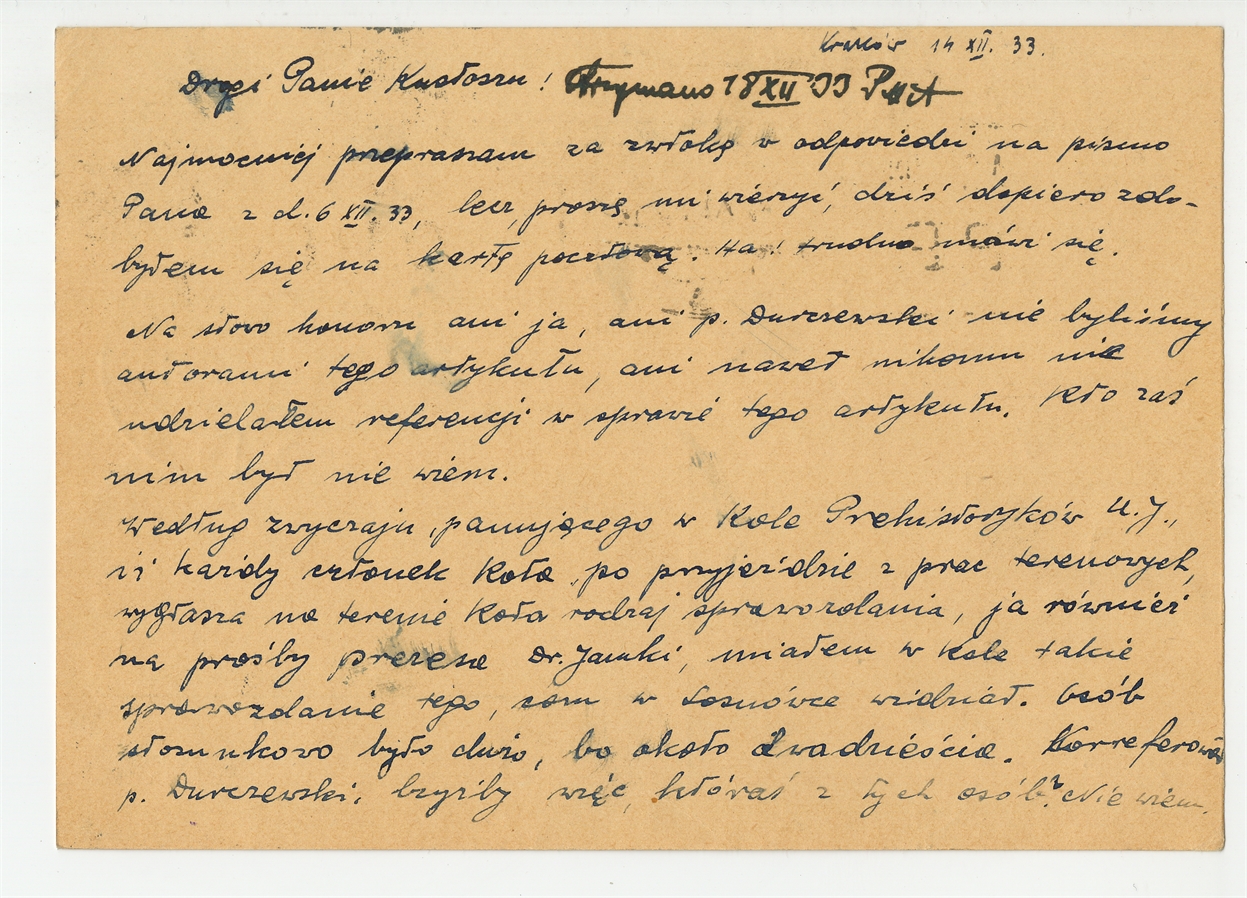 Kraków 14 XII. 33.
Drogi Panie Kustoszu! Otrzymano 18 XII 33 PMA
Najmocniej przepraszam za zwłokę w odpowiedzi na pismo
Pana z d. 6 XII. 33, lecz, proszę mi wierzyć, dziś dopiero zdo-
byłem się na kartę pocztową. Ha! trudno mówi się.
Na słowo honoru ani ja, ani p. Durczewski nie byliśmy
autorami tego artykułu, ani nawet nikomu nie
udzielałem referencji w sprawie tego artykułu. Kto zaś
nim był nie wiem.
Według zwyczaju, panującego w Kole Prehistoryków U. J.,
iż każdy członek Koła, po przyjeździe z prac terenowych,
wygłasza na terenie Koła rodzaj sprawozdania, ja również
na prośby prezesa Dr. Jamki, miałem w Kole takie
sprawozdanie tego, com w Sosnówce widział. Osób
stosunkowo było dużo, bo około dwadzieścia. Korreferował
p. Durczewski. Czyżby więc, któraś z tych osób? Nie wiem.